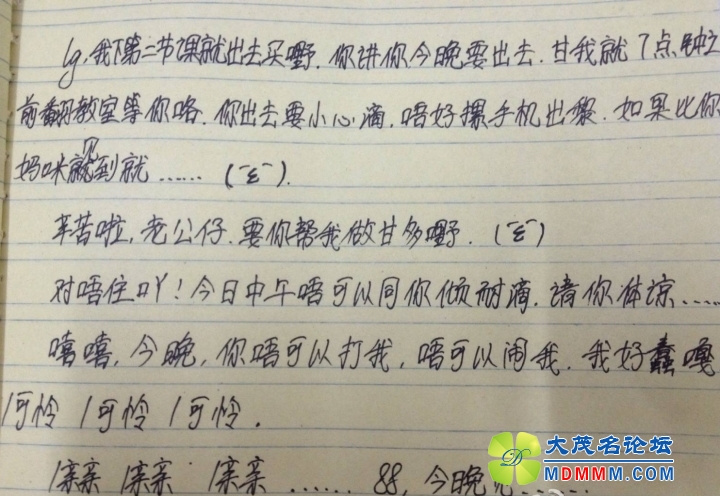 lg,我下第二节课就出去买嘢.你讲你今晚要出去.甘我就7点钟之
前翻教室等你咯.你出去要小心滴.唔好攞手机出黎.如果比你
妈咪睇到就……(ˉ٤ˉ).
辛苦啦,老公仔.要你帮我做甘多嘢.(ˉ٤ˉ)
对唔住吖!今日中午唔可以同你倾耐滴.请你体谅……
嘻嘻,今晚,你唔可以打我,唔可以闹我.我好蠢嘎
/可怜 /可怜 /可怜.
/亲亲 /亲亲 /亲亲……88,今晚见……
大茂名论坛
MDMMM.com